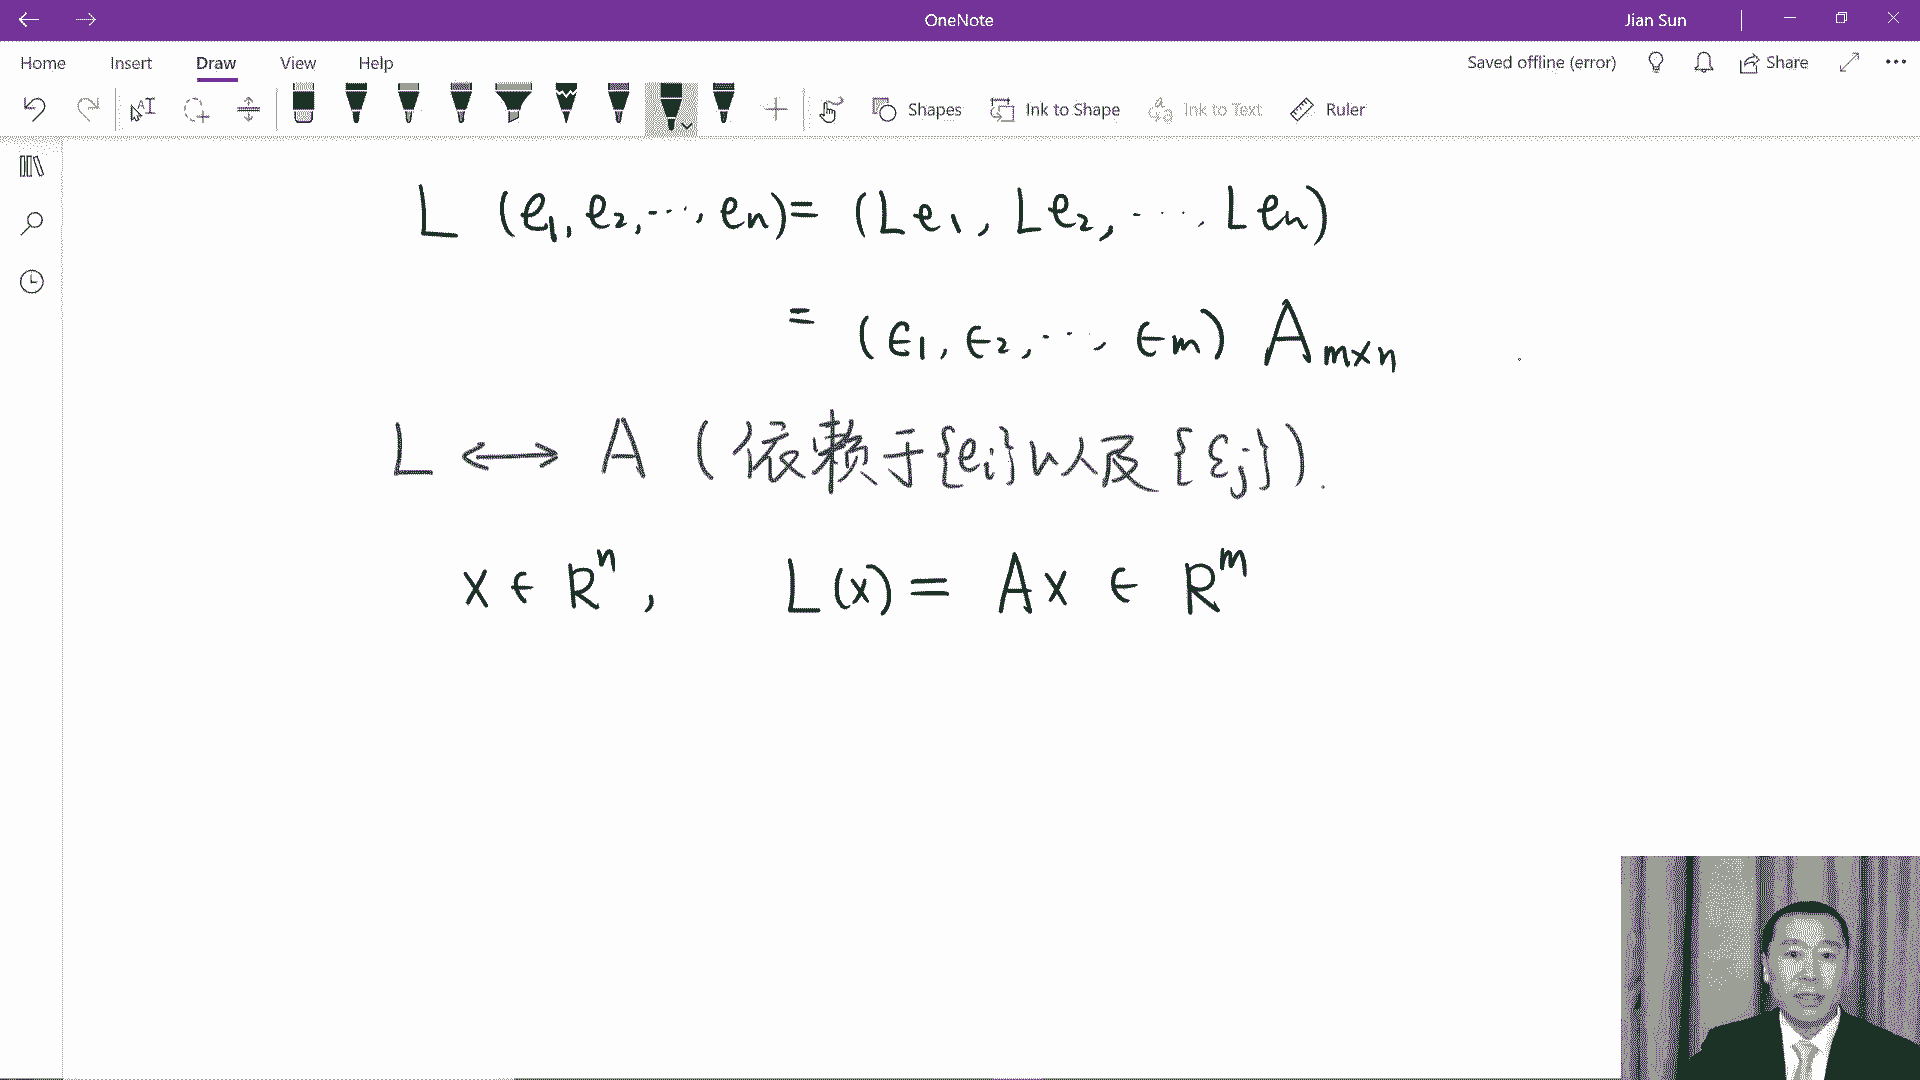 OneNote
Jian Sun
Home Insert Draw View Help
Saved offline (error)
Share
Shapes
Ink to Shape
Ink to Text
Ruler
L (e₁, e₂, ⋯, eₙ) = (Le₁, Le₂, ⋯, Leₙ)
= (ϵ₁, ϵ₂, ⋯, ϵₘ) Aₘₓₙ
L ⟷ A (依赖于{eᵢ}以及{εⱼ}).
x ∈ Rⁿ, L(x) = Ax ∈ Rᵐ